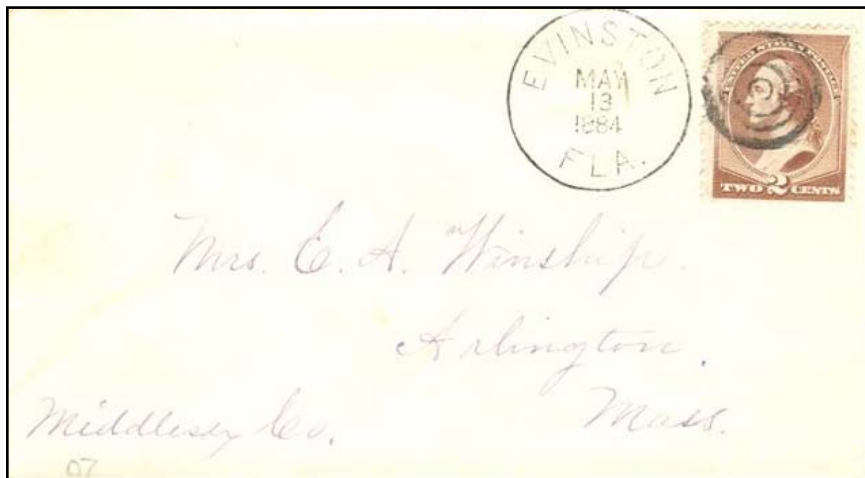 EVINSTON
MAY
13
1884
FLA.
UNITED STATES POSTAGE
TWO 2 CENTS
Mrs. E. A. Winship.
Arlington.
Mass.
Middlesex Co.